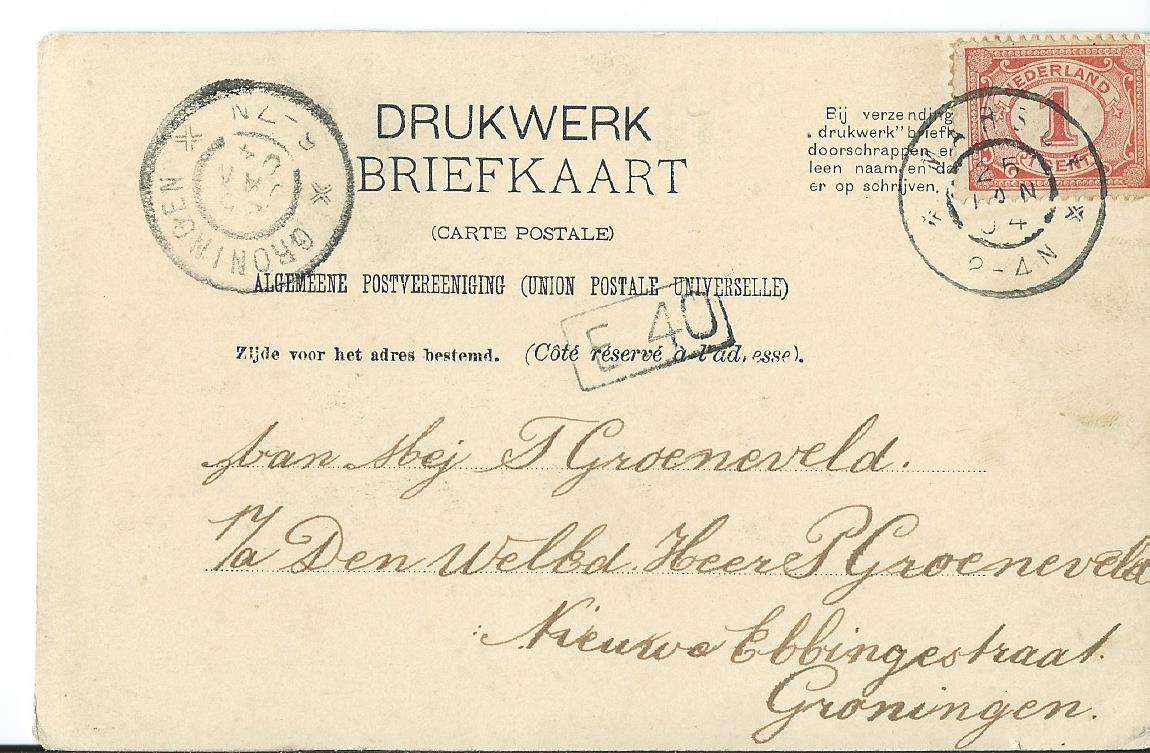 DRUKWERK
BRIEFKAART
(CARTE POSTALE)
ALGEMEENE POSTVEREENIGING (UNION POSTALE UNIVERSELLE)
Zijde voor het adres bestemd. (Côté réservé à l'adresse).
Bij verzending
„drukwerk" briefk
doorschrappen en
leen naam en da
er op schrijven.
NEDERLAND
1
CENT
25
JAN
04
2-4N
GRONINGEN
6-7N
JAN
E 40
Aan Mej T Groeneveld.
p/a Den WelEd. Heer P Groeneveld
Nieuwe Ebbingestraat.
Groningen.